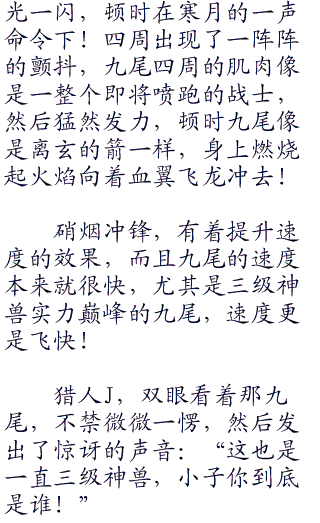 光一闪，顿时在寒月的一声
命令下！四周出现了一阵阵
的颤抖，九尾四周的肌肉像
是一整个即将喷跑的战士，
然后猛然发力，顿时九尾像
是离玄的箭一样，身上燃烧
起火焰向着血翼飞龙冲去！
硝烟冲锋，有着提升速
度的效果，而且九尾的速度
本来就很快，尤其是三级神
兽实力巅峰的九尾，速度更
是飞快！
猎人J，双眼看着那九
尾，不禁微微一愣，然后发
出了惊讶的声音：“这也是
一直三级神兽，小子你到底
是谁！”